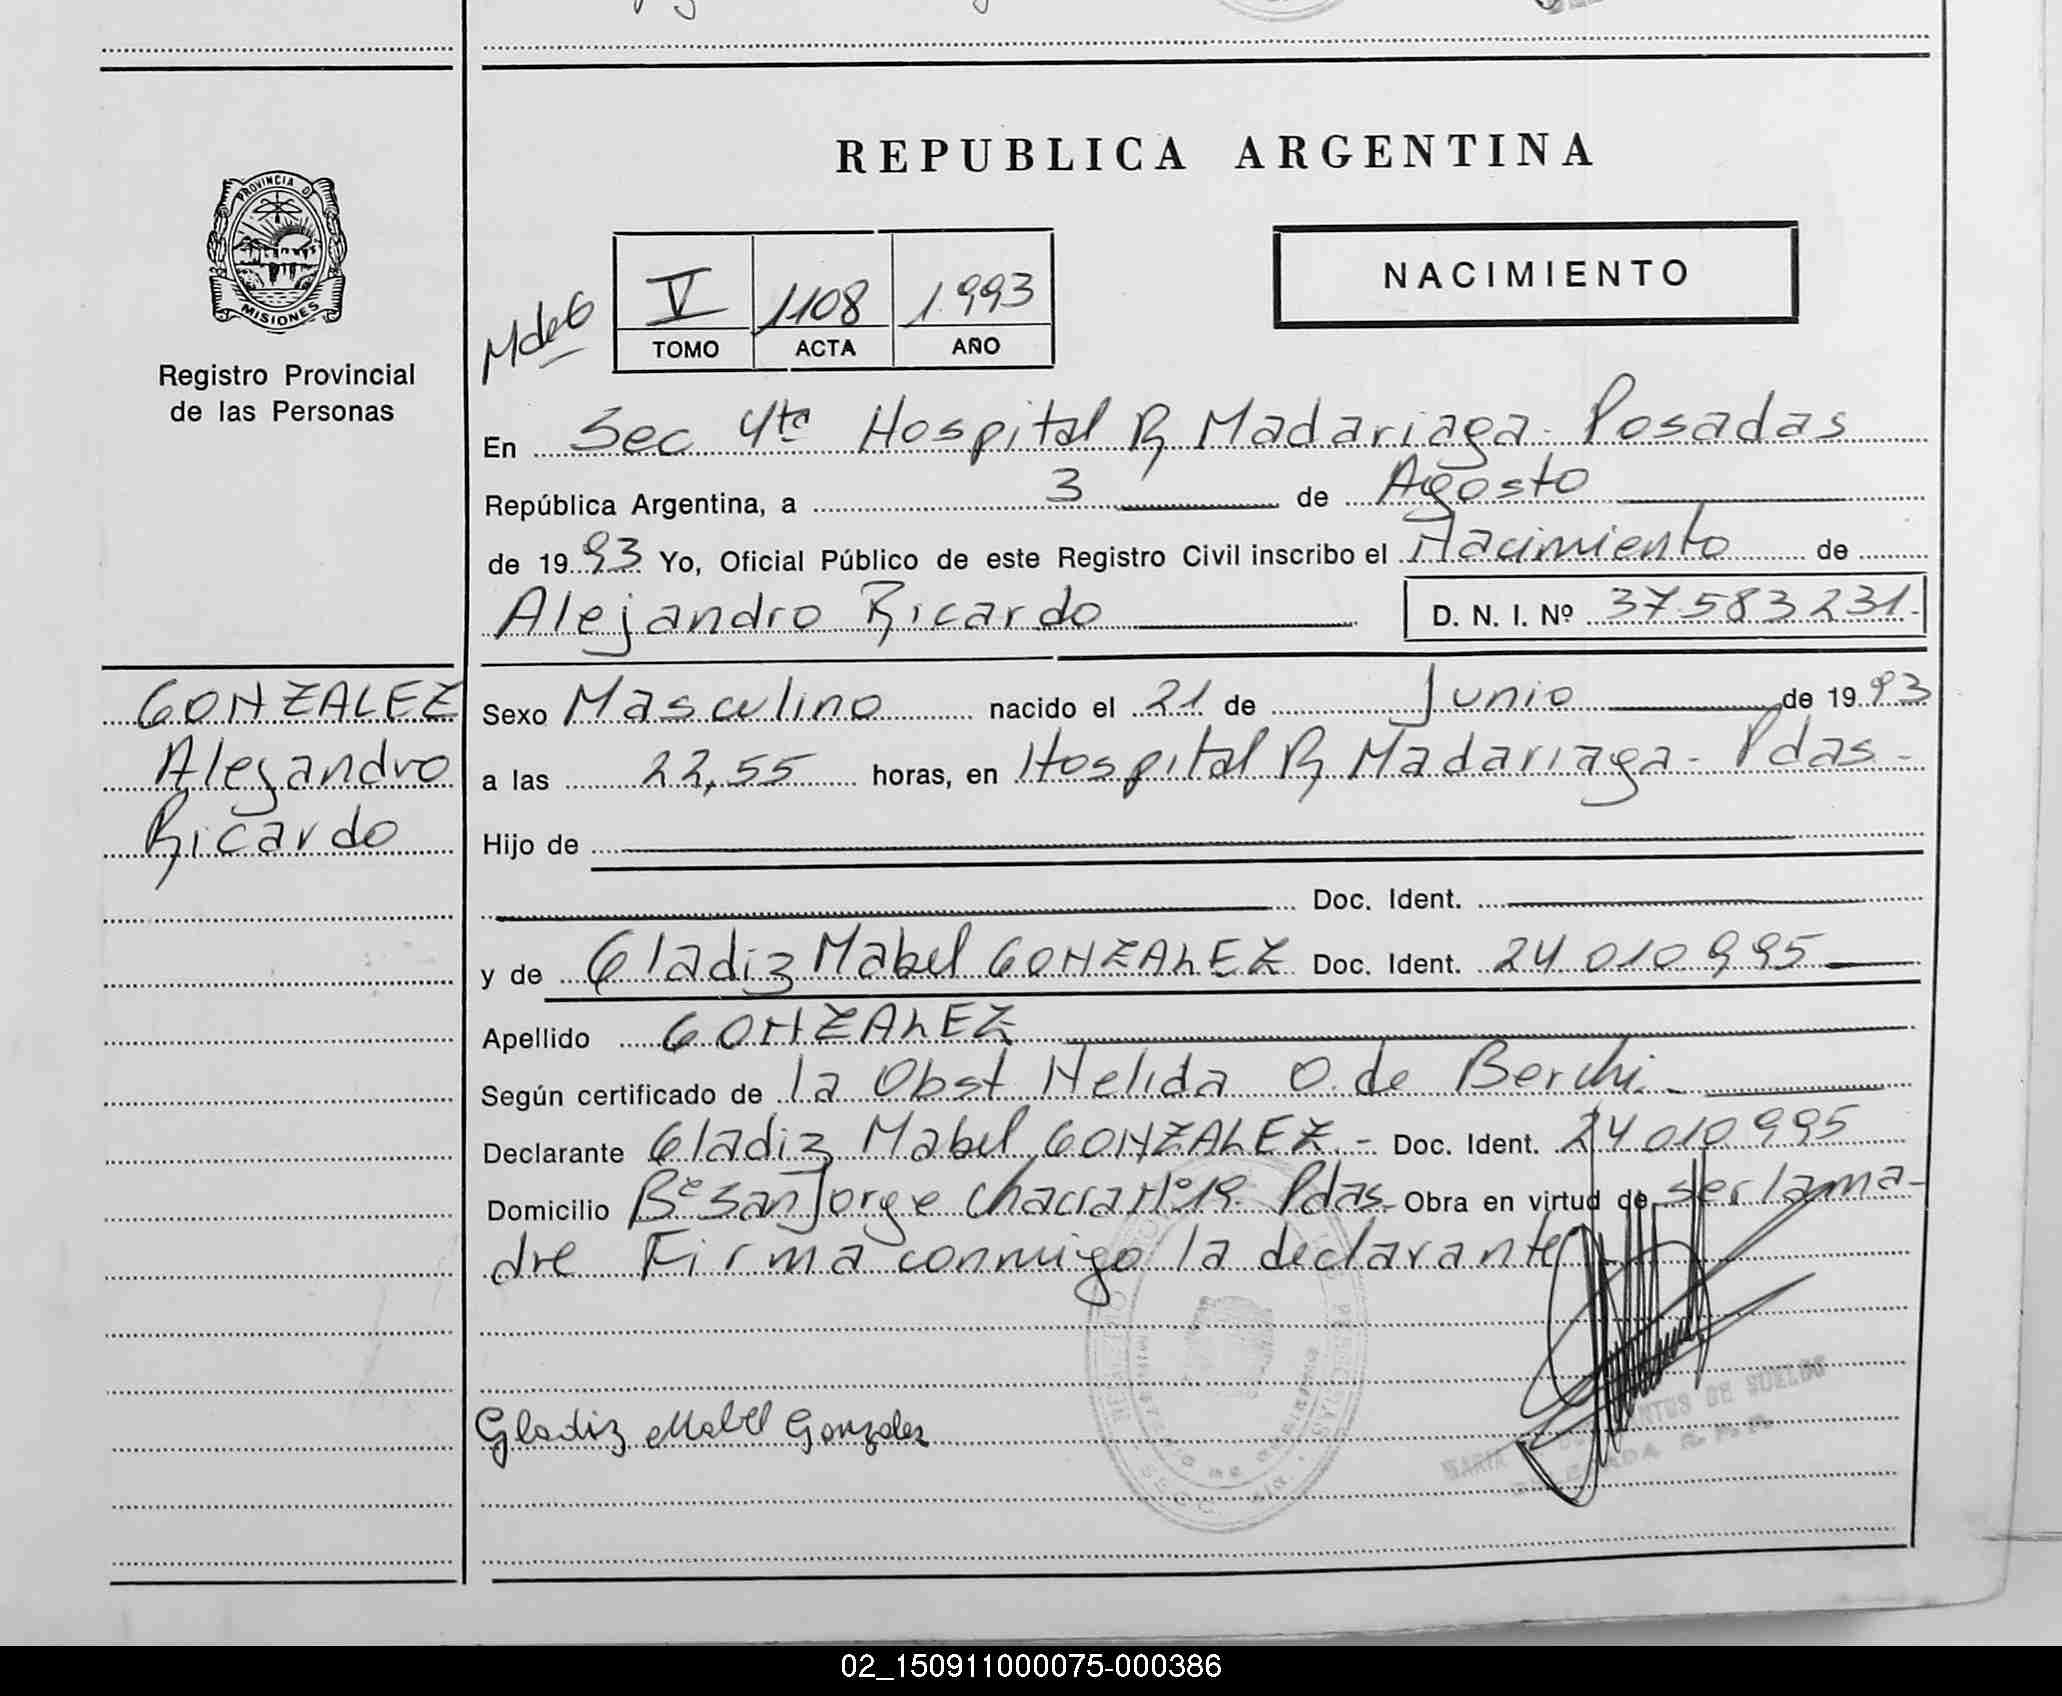 REPUBLICA ARGENTINA
PROVINCIA DE
MISIONES
Registro Provincial
de las Personas
NACIMIENTO
MdeG
V 1108 1.993
TOMO ACTA AÑO
En Sec 4ta Hospital R Madariaga - Posadas
República Argentina, a 3 de Agosto
de 1993 Yo, Oficial Público de este Registro Civil inscribo el Nacimiento de
Alejandro Ricardo D. N. I. Nº 37.583.231.
GONZALEZ
Alejandro
Ricardo
Sexo Masculino nacido el 21 de Junio de 1993
a las 22,55 horas, en Hospital R Madariaga - Pdas -
Hijo de
Doc. Ident.
y de Gladiz Mabel GONZALEZ Doc. Ident. 24 010 995
Apellido GONZALEZ
Según certificado de la Obst Nelida O. de Berchi -
Declarante Gladiz Mabel GONZALEZ.- Doc. Ident. 24 010 995
Domicilio Bº San Jorge Chacra Nº 19. Pdas. Obra en virtud de ser la ma-
dre Firma conmigo la declarante
Gladiz Mabel Gonzalez
02_150911000075-000386